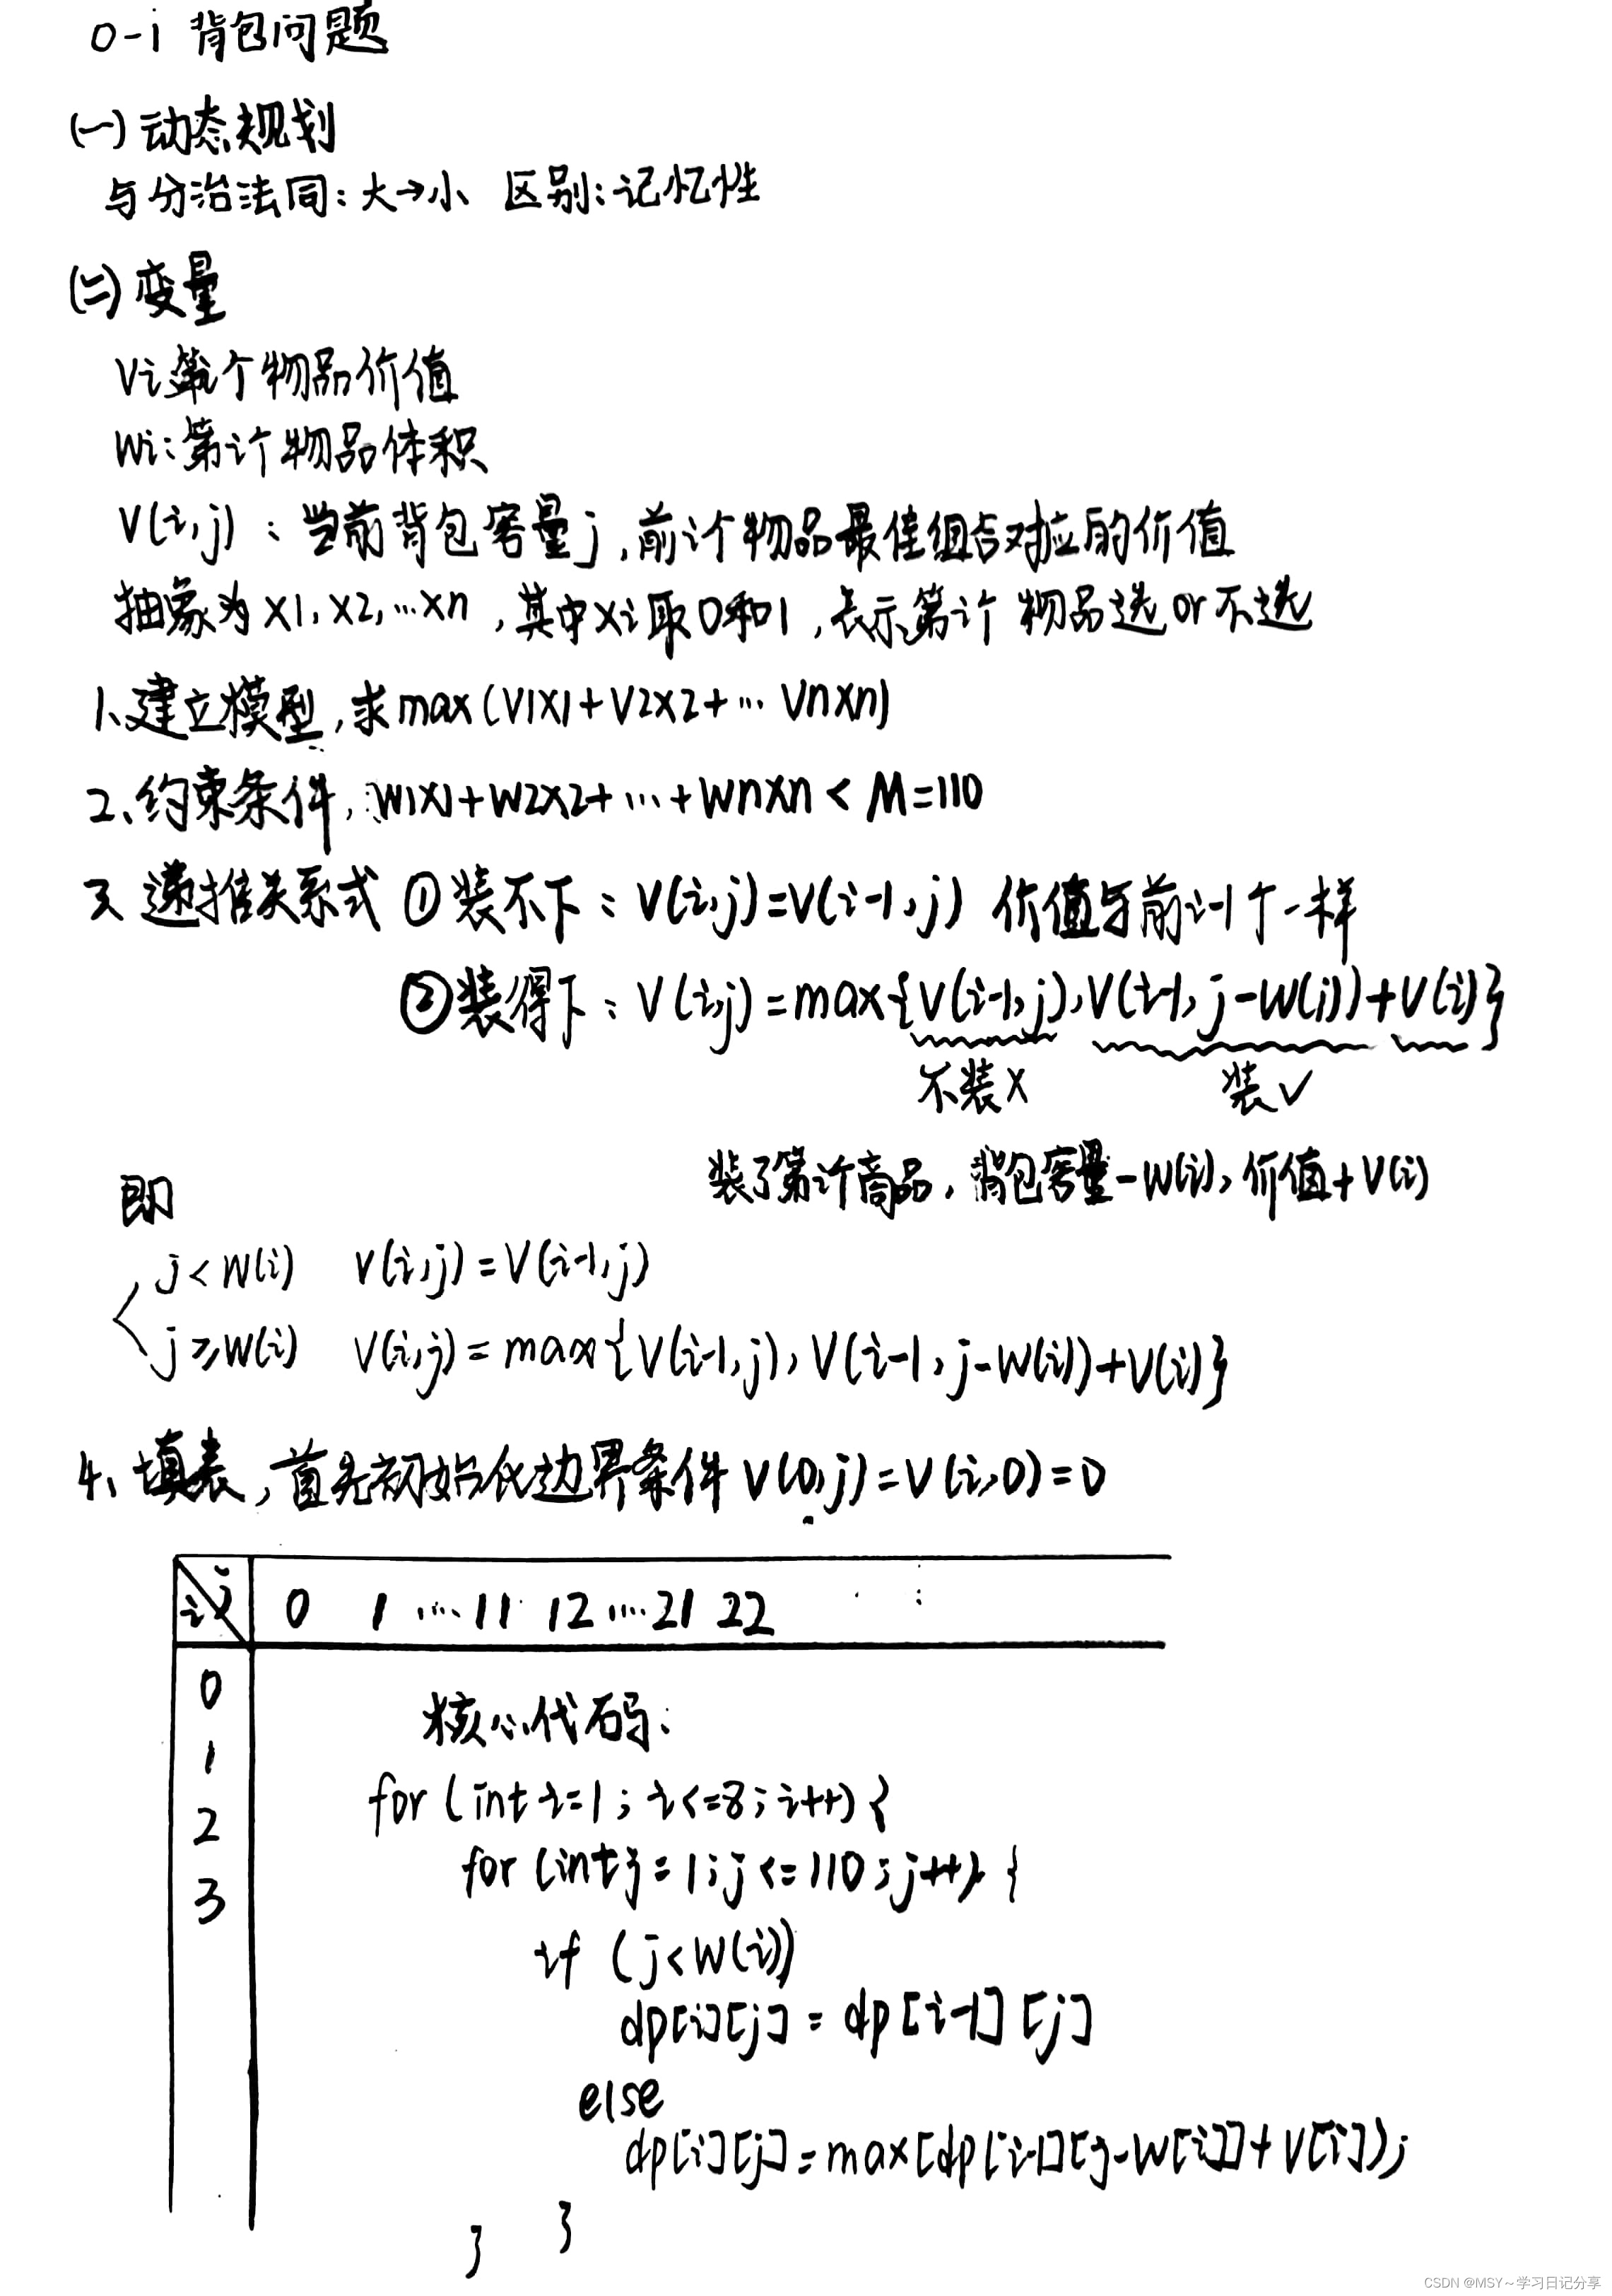 0-1 背包问题
(一) 动态规划
与分治法同：大→小 区别：记忆性
(二) 变量
Vi第i个物品价值
Wi：第i个物品体积
V(i,j)：当前背包容量j，前i个物品最佳组合对应的价值
抽象为x1,x2,…xn，其中xi取0和1，表示第i个物品选or不选
1、建立模型，求max(V1X1+V2X2+…VnXn)
2、约束条件，W1X1+W2X2+…+WnXn<M=110
3、递推关系式 ①装不下：V(i,j)=V(i-1,j) 价值与前i-1个一样
②装得下：V(i,j)=max{V(i-1,j),V(i-1,j-W(i))+V(i)}
不装X 装√
装了第i个商品，背包容量-W(i)，价值+V(i)
即
j<W(i) V(i,j)=V(i-1,j)
j≥W(i) V(i,j)=max{V(i-1,j),V(i-1,j-W(i))+V(i)}
4、填表，首先初始化边界条件V(0,j)=V(i,0)=0
i j 0 1 …11 12 …21 22
0
核心代码：
1
for(int i=1;i<=8;i++){
2
for(int j=1;j<=110;j++){
3
if (j<W(i))
dp[i][j]=dp[i-1][j]
else
dp[i][j]=max[dp[i-1][j-W[i]]+V[i]);
}
}
CSDN @MSY～学习日记分享